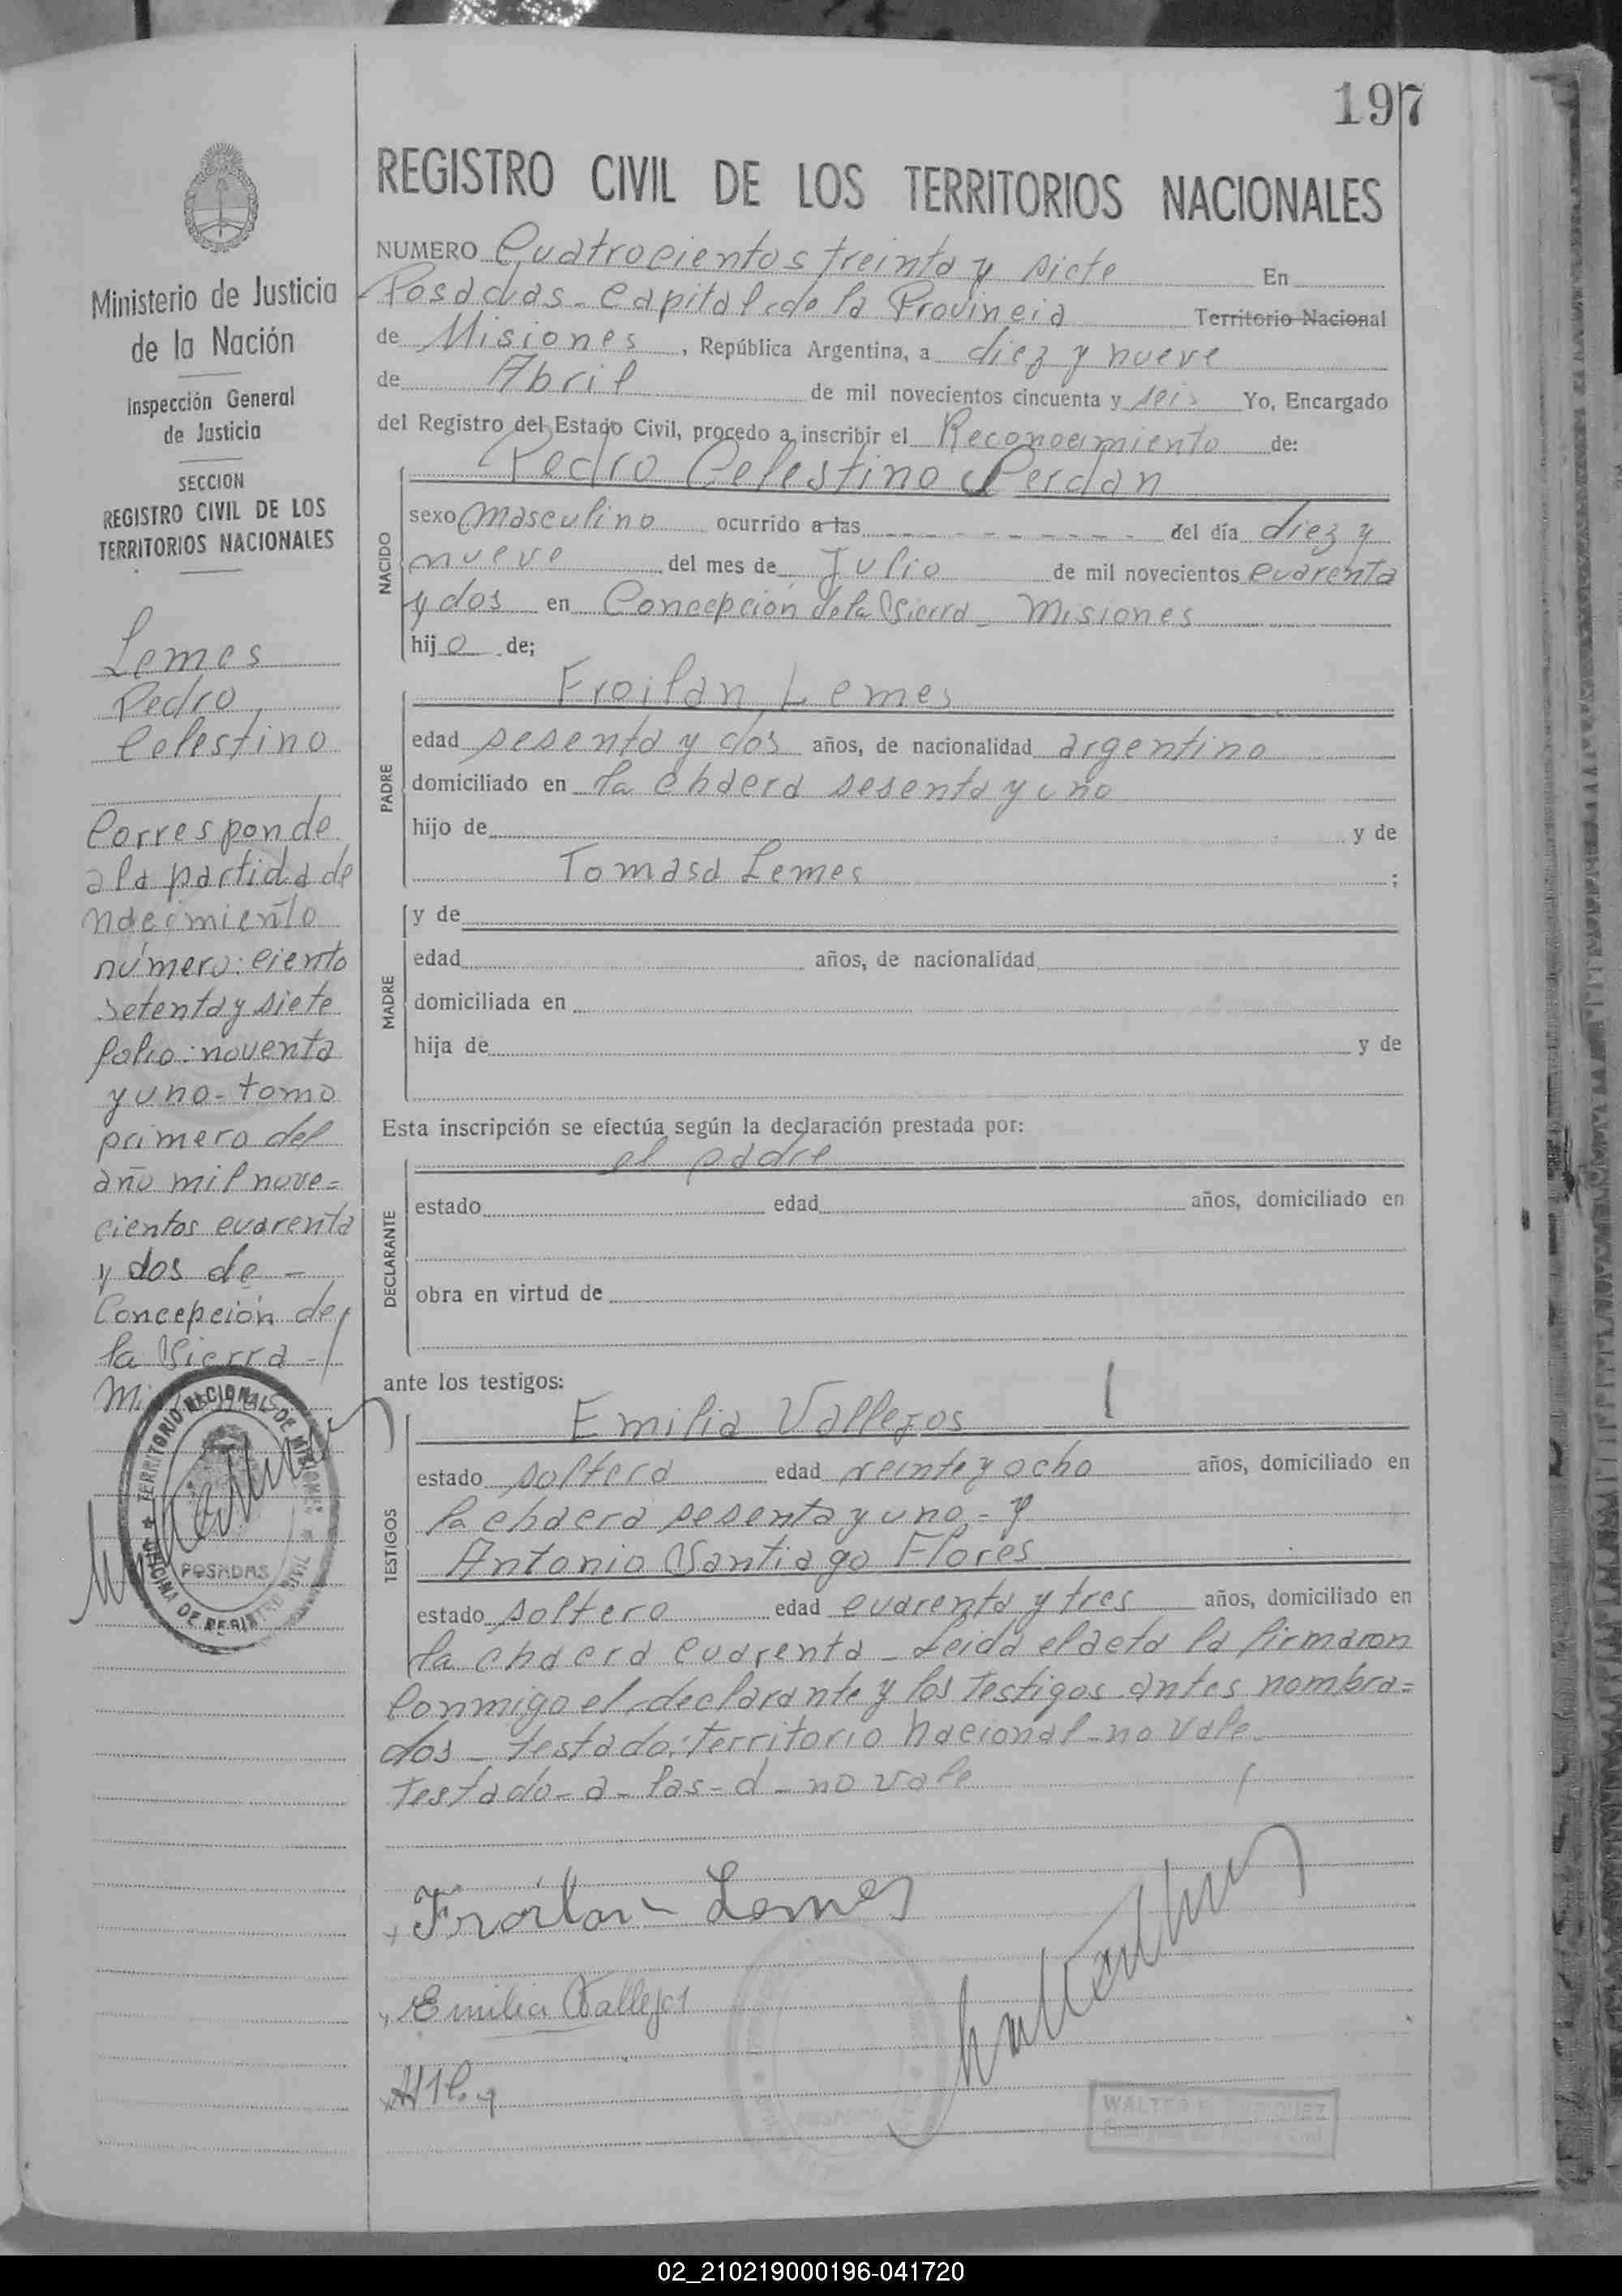 197
REGISTRO CIVIL DE LOS TERRITORIOS NACIONALES
NUMERO Cuatrocientos treinta y siete En
Posadas - Capital de la Provincia Territorio Nacional
de Misiones, República Argentina, a diez y nueve
de Abril de mil novecientos cincuenta y seis Yo, Encargado
del Registro del Estado Civil, procedo a inscribir el Reconocimiento de:
NACIDO
Pedro Celestino Perdan
sexo masculino ocurrido a las - - - - - - - - del día diez y
nueve del mes de Julio de mil novecientos cuarenta
y dos en Concepción de la Sierra - Misiones
hijo de;
PADRE
Froilan Lemes
edad sesenta y dos años, de nacionalidad argentino
domiciliado en la chacra sesenta y uno
hijo de y de
Tomasa Lemes ;
MADRE
y de
edad años, de nacionalidad
domiciliada en
hija de y de
Esta inscripción se efectúa según la declaración prestada por:
DECLARANTE
el padre
estado edad años, domiciliado en
obra en virtud de
ante los testigos:
TESTIGOS
Emilia Vallejos
estado soltera edad veinte y ocho años, domiciliado en
la chacra sesenta y uno - y
Antonio Santiago Flores
estado soltero edad cuarenta y tres años, domiciliado en
la chacra cuarenta - Leida el acta la firmaron
conmigo el declarante y los testigos antes nombra=
dos - testado: Territorio nacional - no vale
Testado - a - las - d - no vale
Froilan Lemes
Emilia Vallejos
WALTER
Ministerio de Justicia
de la Nación
Inspección General
de Justicia
SECCION
REGISTRO CIVIL DE LOS
TERRITORIOS NACIONALES
Lemes
Pedro
Celestino
Corresponde
a la partida de
nacimiento
número: ciento
setenta y siete
folio: noventa
y uno - tomo
primero del
año mil nove=
cientos cuarenta
y dos de -
Concepción de
la Sierra -
Misiones
TERRITORIO NACIONAL DE MISIONES
POSADAS
OFICINA DE REGISTRO CIVIL
02_210219000196-041720